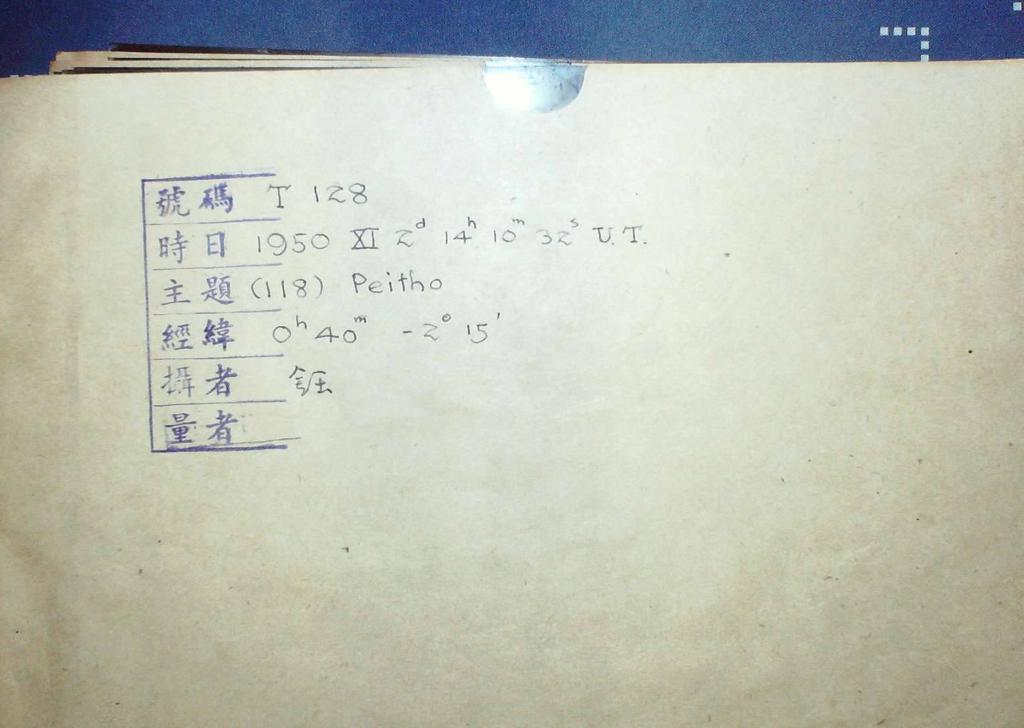 號碼 T 128
時日 1950 XI 2ᵈ 14ʰ 10ᵐ 32ˢ U.T.
主題 (118) Peitho
經緯 0ʰ 40ᵐ -2° 15'
攝者
量者